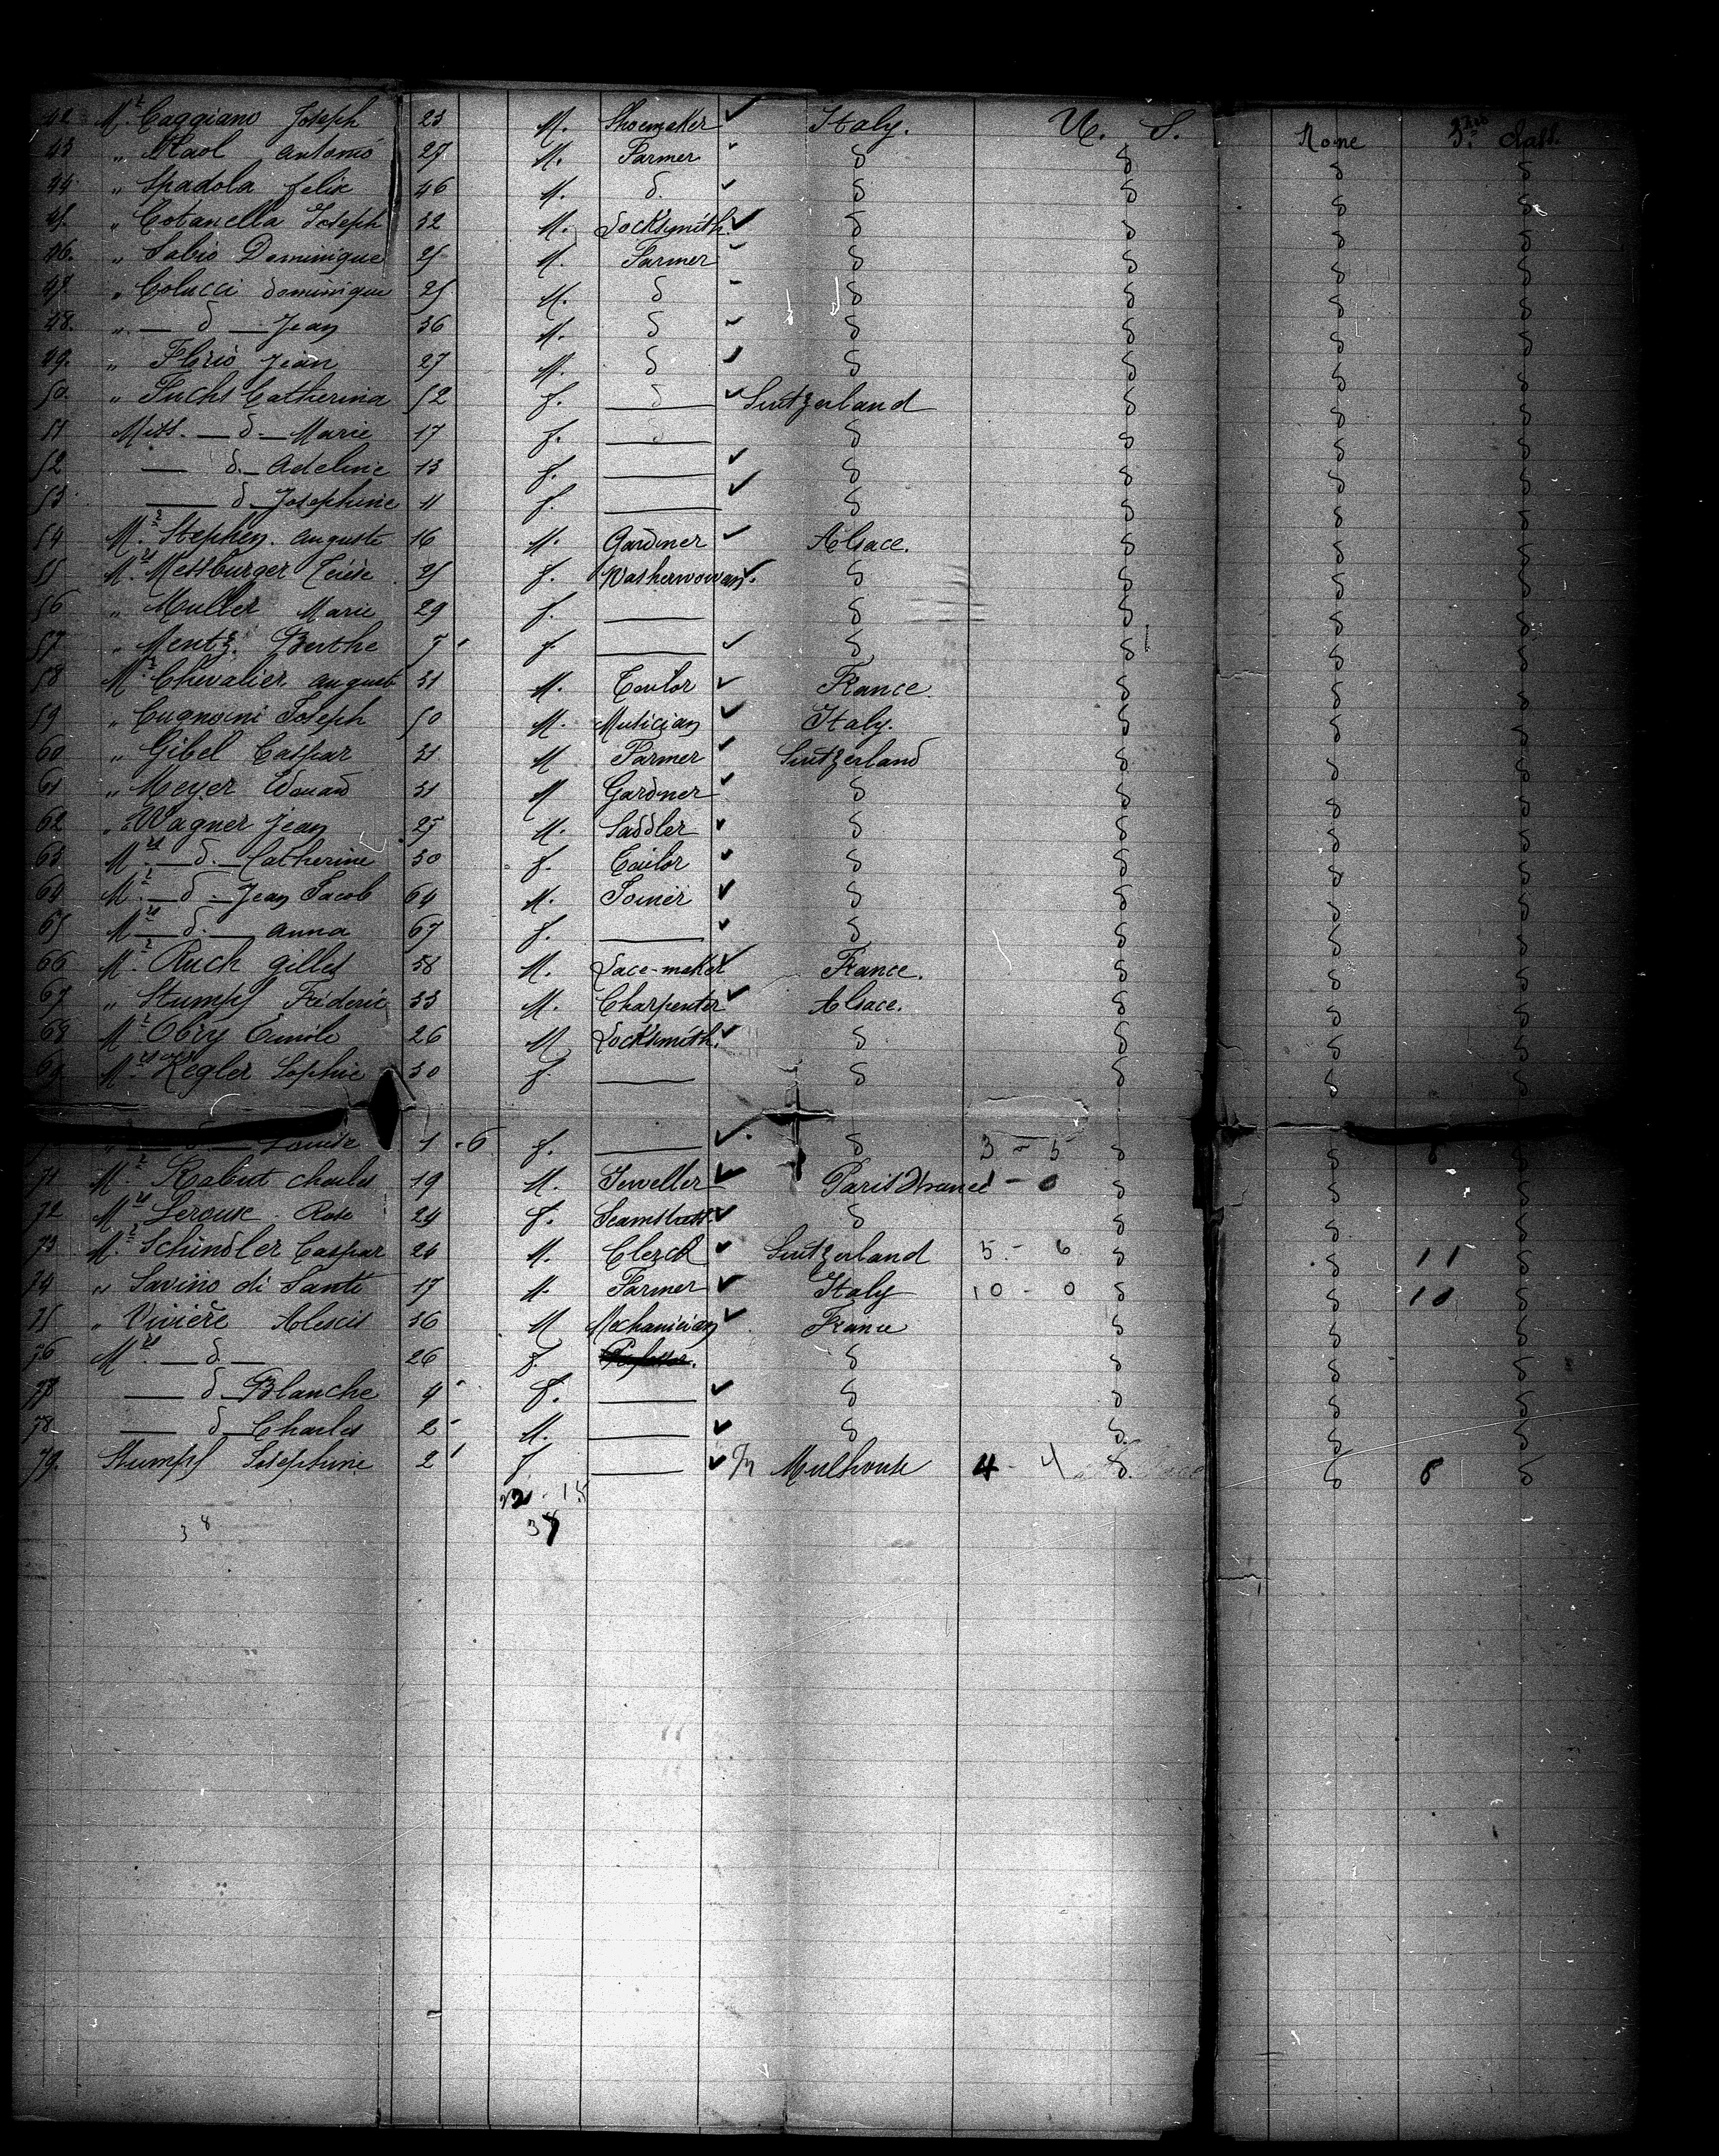 42 Mr. Caggiano Joseph 23 M. Shoemaker ✓ Italy. U. S. None 3rd class.
43 " Raol Antonio 27 M. Farmer d d d d
44 " Spadola felix 46 M. d. ✓ d d d d
45. " Cotanella Joseph 32 M. Locksmith. ✓ d d d d
46. " Sabio Dominique 25 M. Farmer d d d d
47 " Colucci dominique 25 M. d d d d d
48. " — d — Jean 36 M. d ✓ d d d d
49. " Florio Jean 27 M. d ✓ d d d d
50. " Fuchs Catherina 52 f. d ✓ Switzerland d d d
51 Miss. — d. — Marie 17 f. — d d d d
52 — d. — Adeline 13 f. — ✓ d d d d
53 — d — Josephine 11 f. — ✓ d d d d
54 Mr. Stephen. auguste 16 M. Gardner ✓ Alsace. d d d
55 Mrs. Messburger Térèse 25 f. Washerwowan. ✓ d d d d
56 " Muller Marie 29 f. — d d d d
57 " Mentz. Berthe f. — ✓ d d d d
58 Mr. Chevalier august 31 M. Tailor ✓ France. d d d
59 " Cugnoini Joseph 50 M. Musician ✓ Italy. d d d
60 " Gibel Caspar 31 M Farmer ✓ Switzerland d d d
61 " Meyer Edouard 31 M Gardner ✓ d d d d
62 " Wagner Jean 25 M. Saddler ✓ d d d d
63 Mrs. — d. — Catherine 30 f. Tailor ✓ d d d d
64 Mr. — d — Jean Jacob 64 M. Joiner ✓ d d d d
65 Mrs — d. — anna 67 f. — ✓ d d d d
66 Mr. Ruch gilles 38 M. Lace-maker ✓ France. d d d
67 " Stumpf Fréderic 33 M. Charpenter ✓ Alsace. d d d
68 Mr. Obry Emile 26 M Locksmith. ✓ d d d d
69. Mrs. Kegler Sophie 30 f. — d d d d
" — d — Louise 1 . 6 f. — ✓ d 3 - 5 d d 8 d
71 Mr. Rabut charles 19 M. Jeweller ✓ Paris France - 0 d d d
72 Mrs Lerouse. Rose 24 f. Seamstress. ✓ d d d d
73 Mr. Schindler Caspar 24 M. Clerck ✓ Switzerland 5 - 6 d d 11 d
74 " Savino di Santi 17 M. Farmer ✓ Italy 10 - 0 d d 10 d
75 " Vivière Alescis 36 M Mechanician ✓ France d d d
76 Mrs. — d. — 26 f. d d d d
77 — d — Blanche 4 f. — ✓ d d d d
78 — d — Charles 2 M. — ✓ d d d d
79. Stumpf Josephine 2 f — ✓ Mulhouse 4 - 4 d d 8 d
38